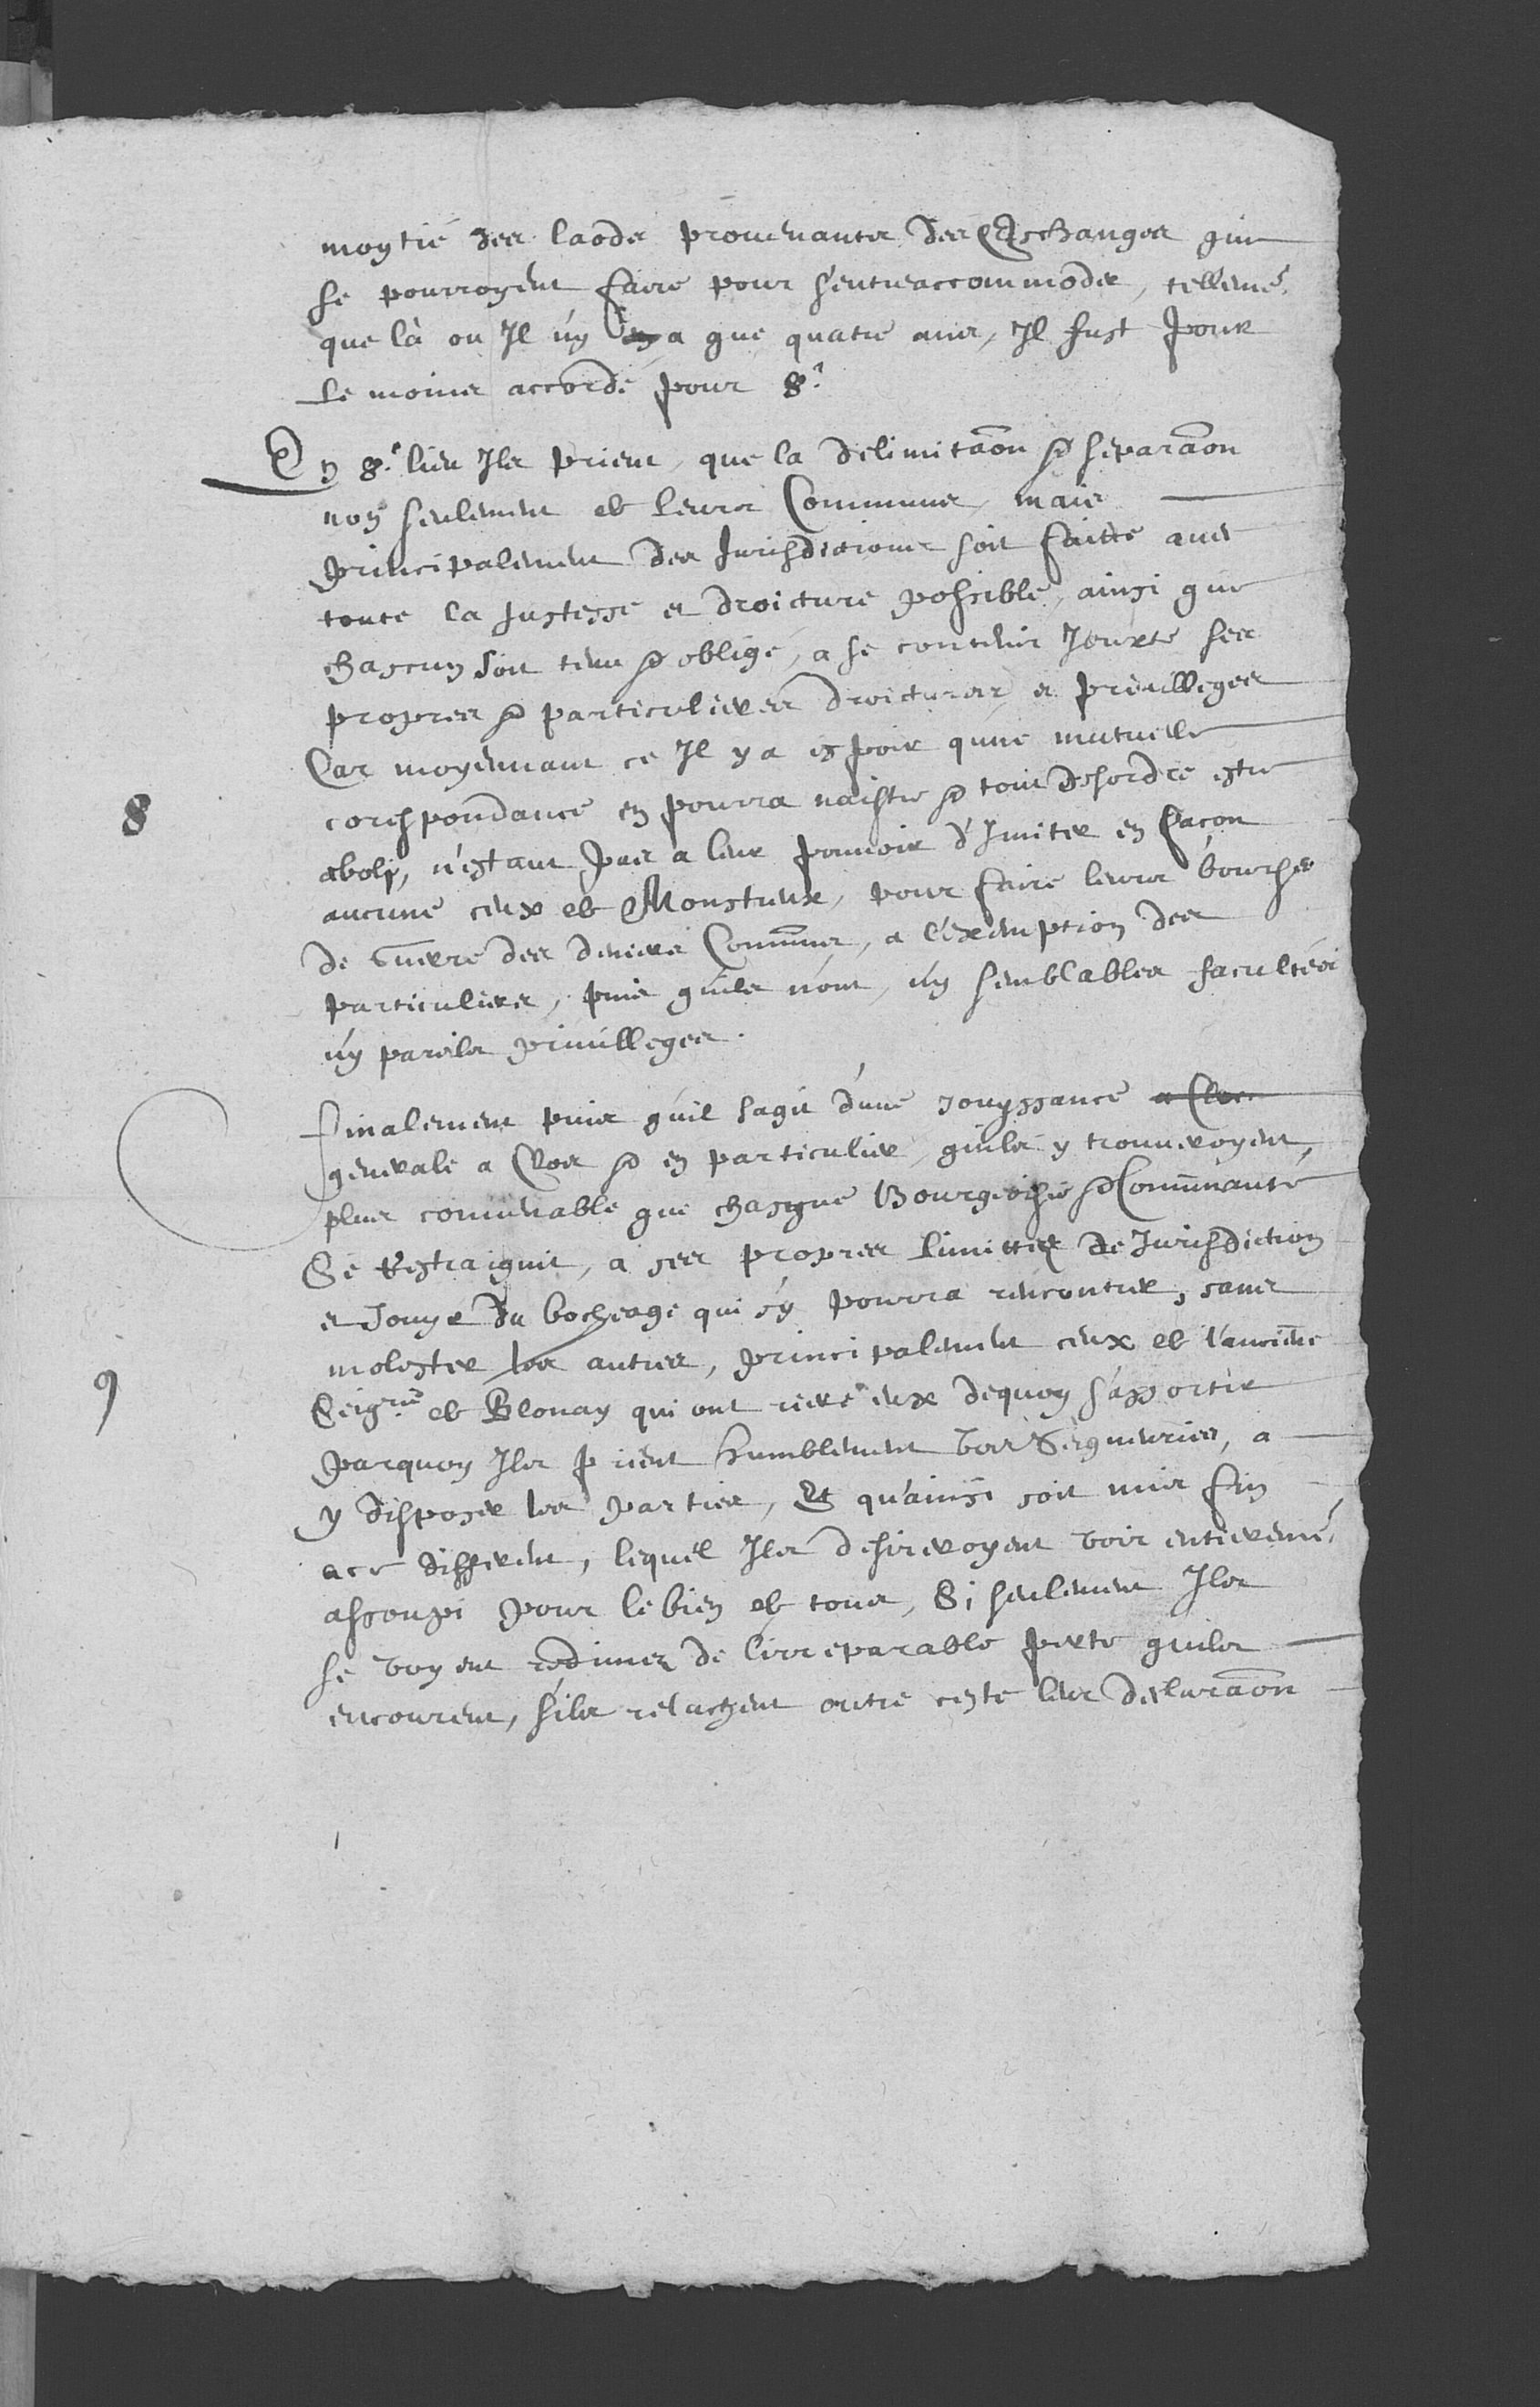 moytié des laods prouenants des Eschanges que
se pourroyent faire pour s'entreaccommoder, tellemẽ.
que là ou Il n'y a que quatre ans, Il fust pour
le moins accordé pour 8.
En 8.e lieu Ils prient, que la delimitaõn & separaõn
non seulement de leurs Communes, mais
principalement des Jurisdictions soit faitte auec
toute la justesse et droicture possible, ainsi que
chascun soit tenu & obligé, a se contenir Jouxte ses
propres & particulieres droictures et preuilleges
Car moyennant ce Il y a espoir qu'une mutuelle
corespondance en pourra naistre & tout desordre estre
aboly, n'estant pas a leur pouuoir d'Imiter en façon
aucune ceux de Monstreux, pour faire leurs bourses
de Guerre des deniers Commũns, a l'exemption des
particuliers, puis quils n'ont, n'y semblables facultés
n'y pareils priuilleges.
finalement puis qu'il sagit d'une jouyssance a Clos
generale a Clos & en particulier, quils y trouueroyent,
plus conuenable que chasque Bourgeoisie & Commũnauté
Se Restraignit, a ses propres limittes de Jurisdiction
et Jouyr du bocheage qui s'y pourra rencontrer, sans
molester les autres, principalement ceux de l'anciẽne
Seigrie de Blonay qui ont riere eux dequoy s'assortir
parquoy Ils prient humblement vos Seigneuries, a
y disposer les parties, Et qu'ainsi soit mis fin
a ce different, lequel Ils desireroyent voir entieremẽ.
assoupi pour le bien de tous, Si seulement Ils
se voyent redimez de l'irreparable perte quils
encourent, s'ils relachent outre ceste leur declaraõn
8
9